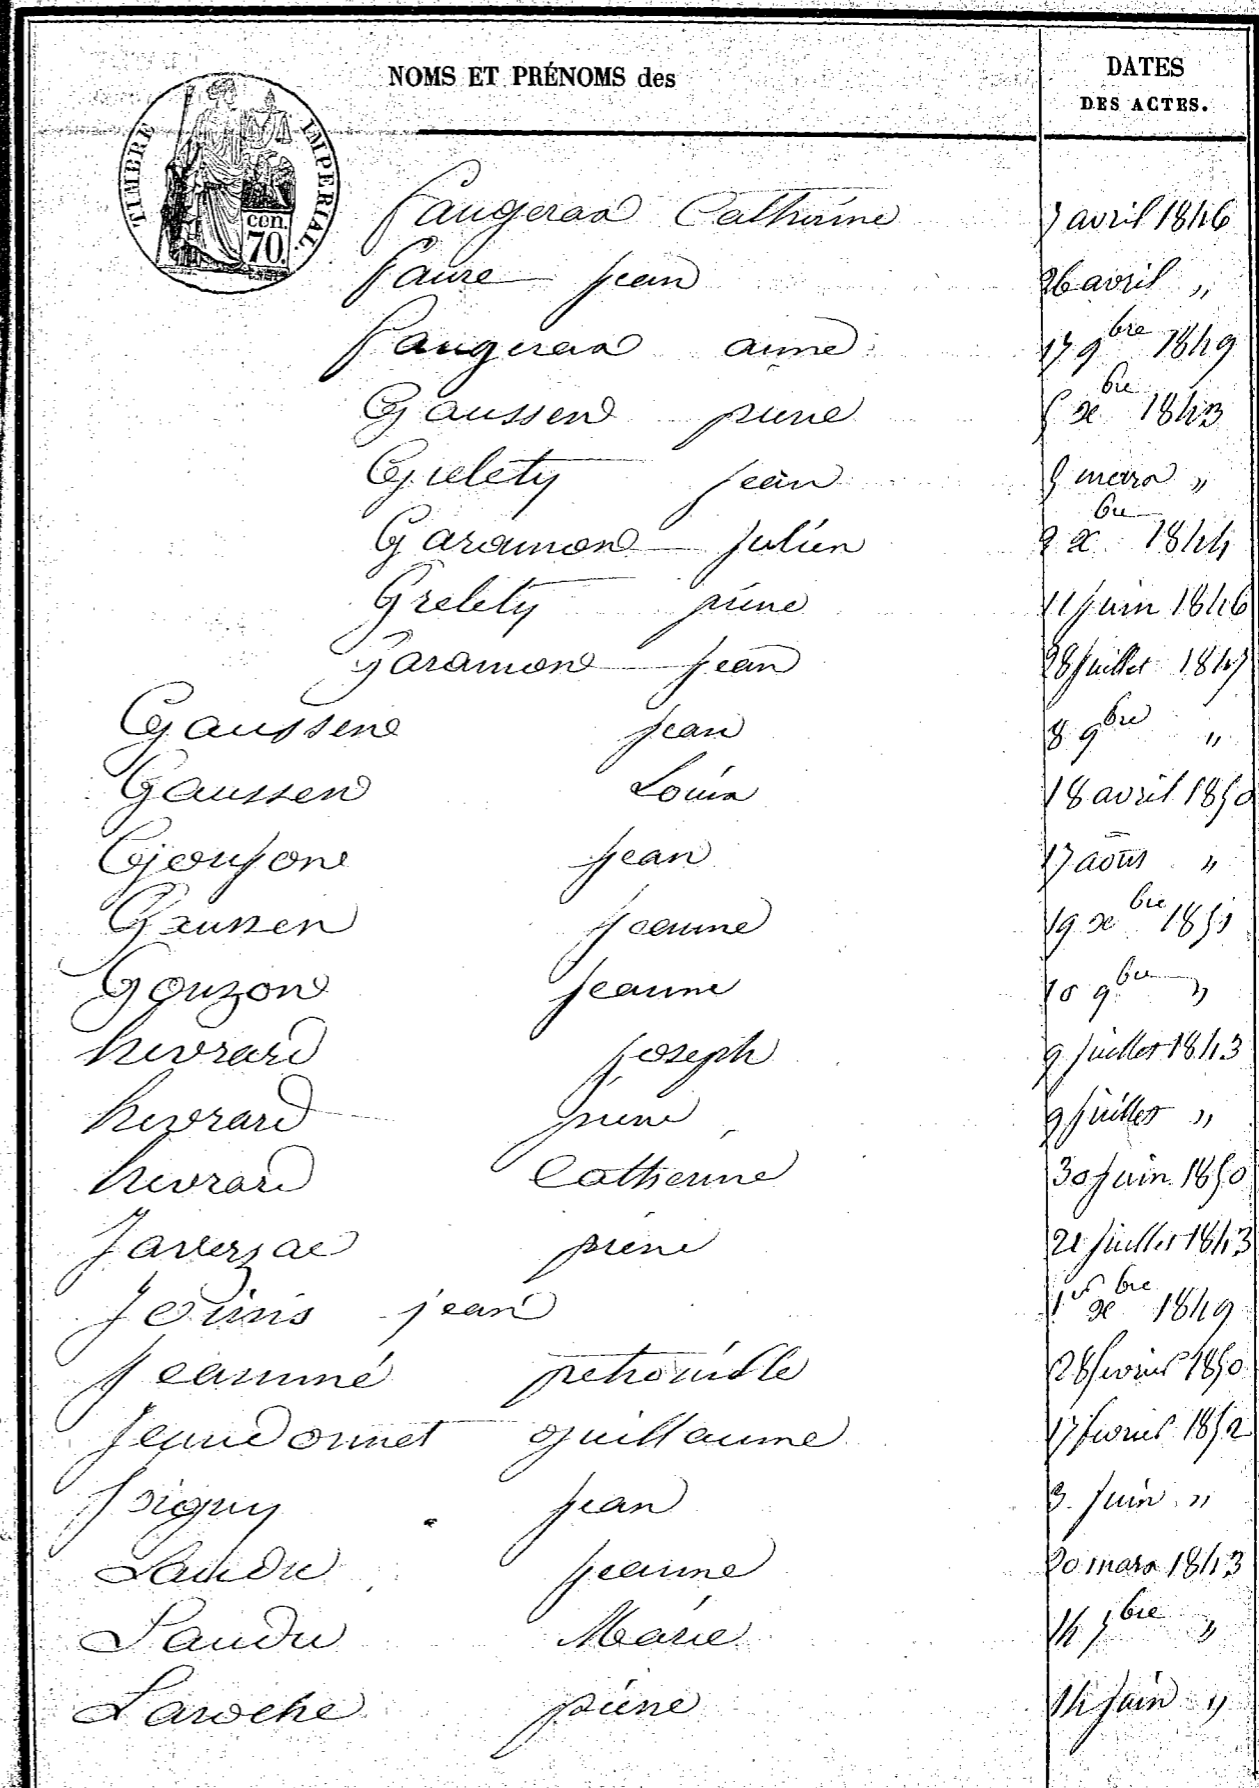 NOMS ET PRÉNOMS des
DATES
DES ACTES.
TIMBRE IMPERIAL.
cen.
70.
faugeras Catherine 7 avril 1846
faure jean 26 avril "
faugeras anne 17 9bre 1849
Gaussen pierre 5 xbre 1843
Grelety jean 5 mars "
Garamon Julien 2 xbre 1844
Grelety pierre 11 juin 1846
Garamon jean 28 juillet 1847
Gaussen jean 8 9bre "
Gaussen Louis 18 avril 1850
Goujon jean 17 août "
Gaussen jeanne 19 xbre 1851
Gouzon jeanne 10 9bre "
hivrard joseph 9 juillet 1843
hivrard pierre 9 juillet "
hivrard Catherine 30 juin 1850
Javerzac pierre 21 juillet 1843
jean 1er xbre 1849
jeammé petronille 28 fevrier 1850
Jeandonnet guillaume 17 fevrier 1852
jean 3 juin "
Landu jeanne 20 mars 1843
Landu Marie 14 7bre "
Laroche pierre 14 juin "